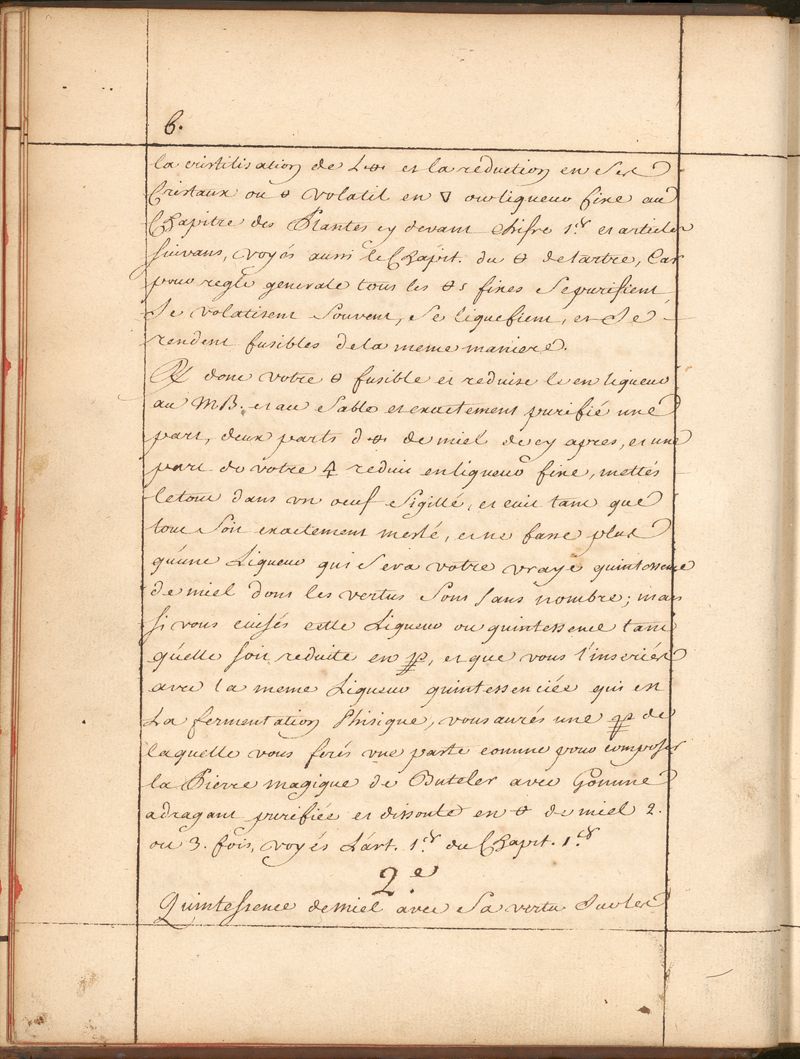 6.
la cristilisation de l'🜔 et la reduction en ses
Cristaux ou 🜔 volatil en 🜄 ou liqueur fixe au
Chapitre des Plantes cy devant chifre 1.er et articles
suivans, voyés aussi le Chapit. du 🜔 de tartre, Car
pour regle generale tous les 🜔s fixes se purifient
se volatisent souvent, se liquefient, et se
rendent fusibles de la meme maniere.
donc votre 🜔 fusible et reduise le en liqueur
au MB. et au sable et exactement purifié une
part, deux parts d' de miel de cy apres, et une
part de votre 🜍 reduit en liqueur fixe, mettés
le tout dans un oeuf sigillé, et cuit tant que
tout soit exactement meslé, et ne fasse plus
qu'une Liqueur qui sera votre vraye quintessence
de miel dont les vertus sont sans nombre; mais
si vous cuisés cette Liqueur ou quintessence tant
qu'elle soit reduite en , et que vous l'inseriés
avec la meme Liqueur quintessenciée qui est
La fermentation Phisique, vous aurés une de
laquelle vous ferés une parte comme pour composer
la Pierre magique de Buteler avec Gomme
adragant purifiée et dissoute en 🜔 de miel 2.
ou 3. fois, voyés L'art. 1.er du Chapit. 1.er
2.e
Quintessence de miel avec sa vertu sur les